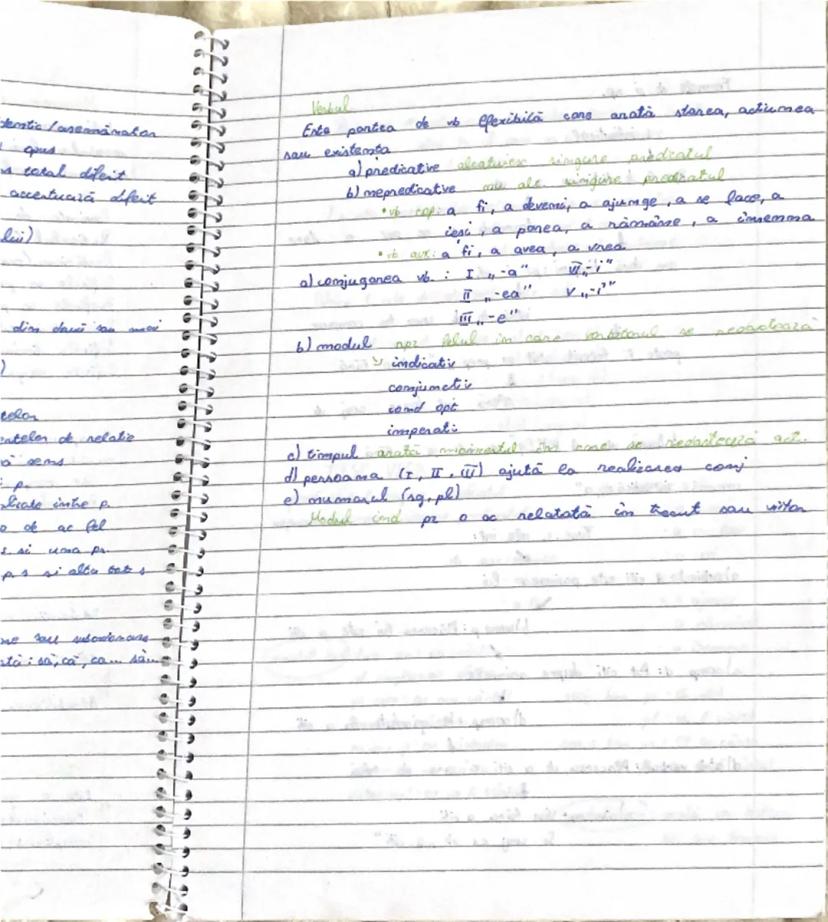 dentic/asemănător
opus
s total diferit
accentuează diferit
lui)
din două sau mai
)
telor
entelor de relatie
ă sens
i p.
plicate intre p.
o de ac fel
s si una pr.
p s si alta
ne sau subordonare
stă: să, că, ca... să...
Verbul
Este partea de vb flexibilă care arată starea, actiunea
sau existenta
a) predicative alcatuiesc singure predicatul
b) nepredicative nu alc. singure predicatul
• vb cop: a fi, a deveni, a ajunge, a se face, a
iesi, a parea, a rămâne, a însemna
• vb aux: a fi, a avea, a vrea
a) conjugarea vb. : I „-a" VI „-i"
II „-ea" V „-î"
III „-e"
b) modul apz felul in care vorbitorul se
↘ indicativ
conjunctiv
cond opt
imperativ
c) timpul arată momentul în care se act.
d) persoana (I, II, III) ajută la realizarea conj
e) numarul (sg, pl)
Modul ind pz o ac relatată în trecut sau viitor